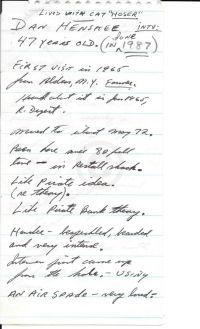 LIVED WITH CAT "MOSER"
DAN HENSKEE INTV:
47 YEARS OLD. (IN JUNE 1987)
FIRST VISIT in 1965
from Alden, N.Y. Farmer.
about it in Jan 1965,
R. Digest.
moved to island may 72.
Been here over 80 full
time - in Restall shack.
Like Pirate idea.
(re theory).
Like Pirate Bank theory.
Henskee - bespectacled, bearded
and very intense.
Interview first came up
from the hole, - USING
AN AIR SPADE - very loud -